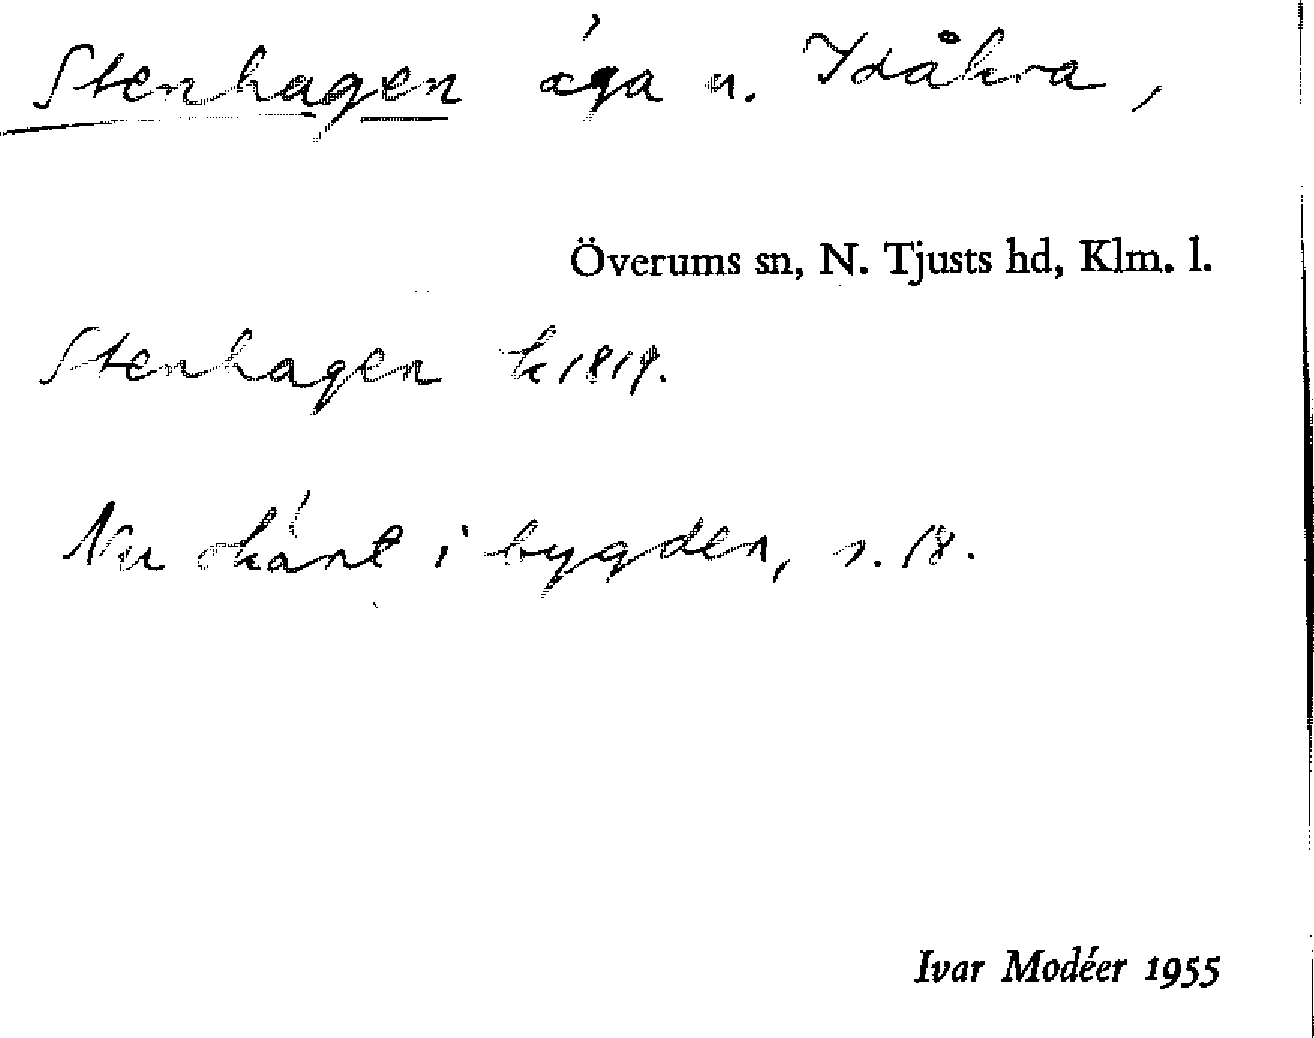 Stenhagen äga u. Idåkra,
Överums sn, N. Tjusts hd, Klm. l.
Stenhagen k 1819.
Nu okänt i bygden, s. 18.
Ivar Modéer 1955